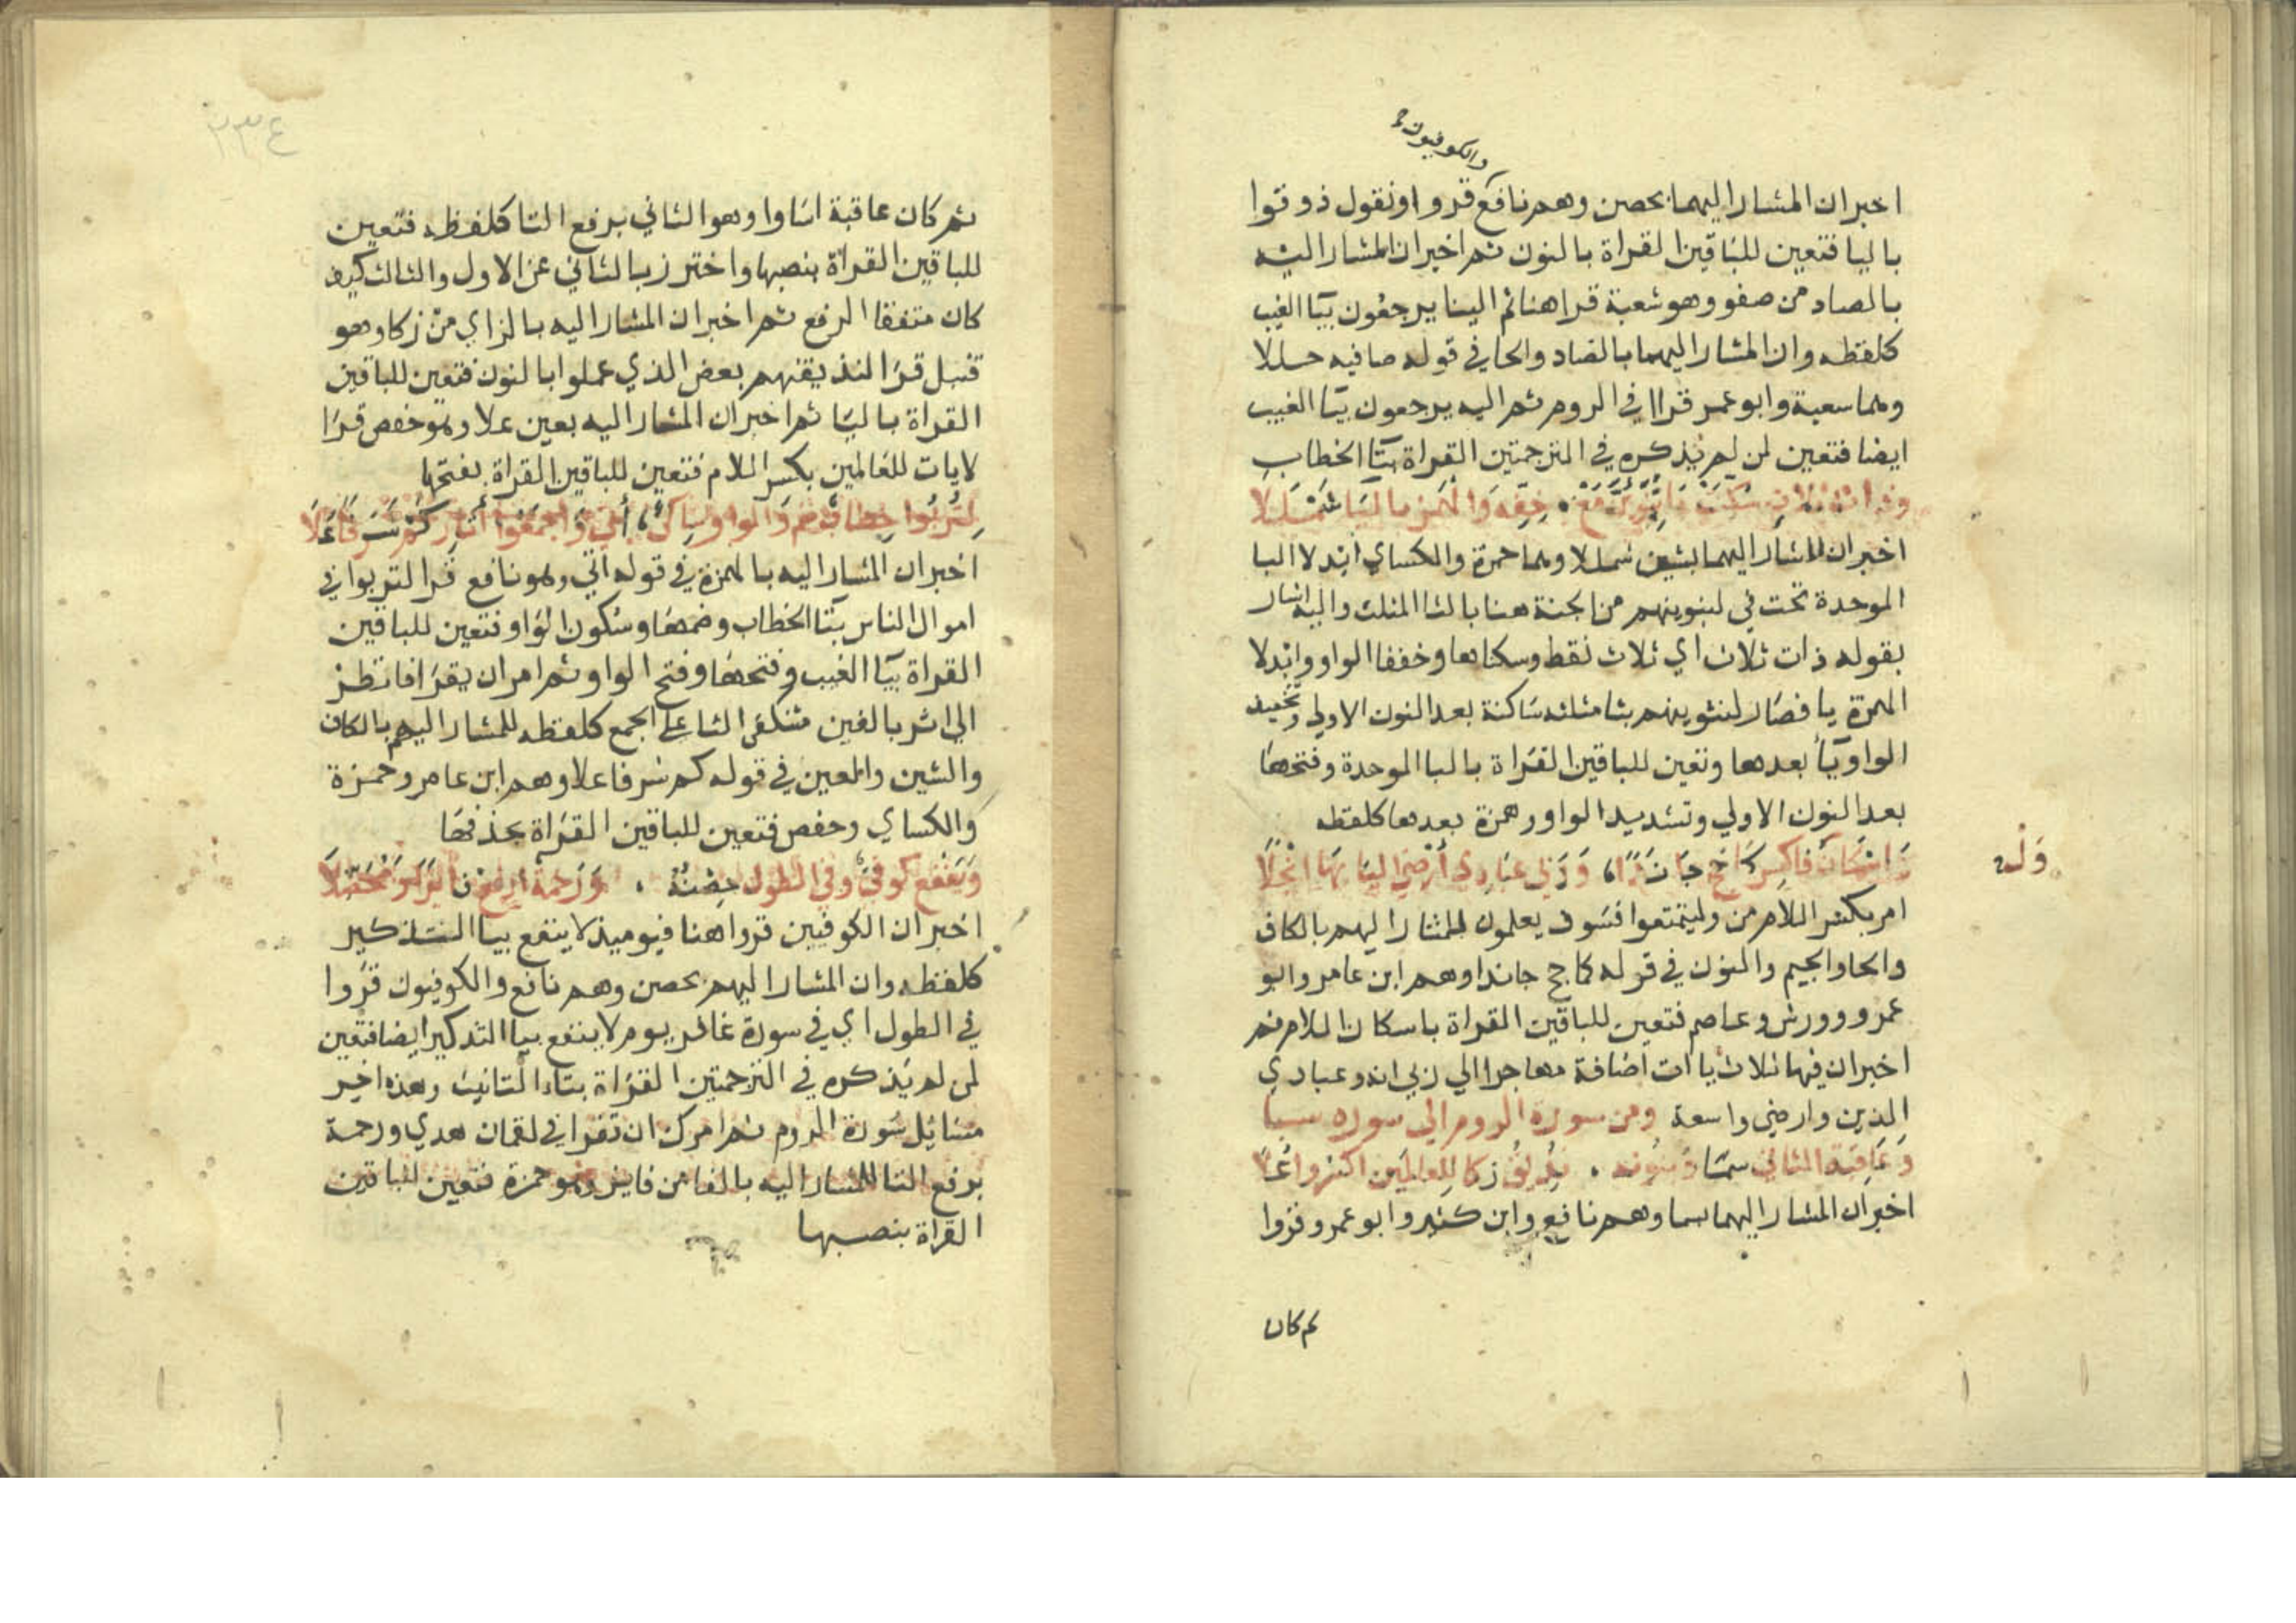 والكوفيون
اخبر ان المشار اليهما بحصن وهم نافع قروا ونقول ذوقوا
باليا فتعين للباقين القراة بالنون ثم اخبر ان المشار اليه
بالصاد من صفو وهو شعبة قرا هنا ثم الينا يرجعون بيا الغيب
كلفظه وان المشار اليهما بالصاد والحا في قوله صافيه حللا
وهما سعبة وابو عمر قراا في الروم ثم اليه يرجعون بيا الغيب
ايضا فتعين لمن لم يذكره في الترجمتين القراة بتا الخطاب
وذات ثلاث سكنت با نبوئن مع خفه والهمز باليا شمللا
اخبر ان المشار اليهما بشين شمللا وهما حمزة والكساي ابدلا البا
الموحدة تحت في لنبوينهم من الجنة هنا بالثا المثلث واليه اشار
بقوله ذات ثلاث اي ثلاث نقط وسكناها وخففا الواو وابدلا
الهمزة يا فصار لنثوينهم بثا مثلثه ساكنة بعد النون الاولي وتخفيف
الواو ويا بعدها وتعين للباقين القراة بالبا الموحدة وفتحها
بعد النون الاولي وتشديد الواو وهمزة بعدها كلفظه
واسكان ول فاكسر كما حج جا ندا، وربي عبادي ارضي اليا بها انجلا
امر بكسر اللام من وليتمتعوا فسوف يعلمون للمشار اليهم بالكاف
والحا والجيم والنون في قوله كما حج جا ندا وهم ابن عامر وابو
عمرو وورش وعاصم فتعين للباقين القراة باسكان اللام ثم
اخبر ان فيها ثلاث ياات اضافة مهاجر الي ربي انه وعبادي
الذين وارضي واسعة ومن سورة الروم الي سورة سبا
وعاقبة الثاني سما وبنونه . نذيق زكا للعالمين اكسروا علا
اخبر ان المشار اليهما بسما وهم نافع وابن كثير وابو عمرو قروا
ثم كان
٢٣٤
ثم كان عاقبة اساوا وهو الثاني برفع التا كلفظه فتعين
للباقين القراة بنصبها واحترز بالثاني عن الاول والثالث كيف
كان متفقا الرفع ثم اخبر ان المشار اليه بالزاي من زكا وهو
قنبل قرا لنذيقنهم بعض الذي عملوا بالنون فتعين للباقين
القراة باليا ثم اخبر ان المشار اليه بعين علا وهو حفص قرا
لايات للعالمين بكسر اللام فتعين للباقين القراة بفتحها
لتربوا خطاب ضم والواو ساكن، أتى واجمعوا آثار كم شرفا علا
اخبر ان المشار اليه بالهمزة في قوله اتي وهو نافع قرا لتربوا في
اموال الناس بتا الخطاب وضمها وسكون الواو فتعين للباقين
القراة بيا الغيب وفتحها وفتح الواو ثم امر ان يقرا فانظر
الي اثر بالفين متنكفي الثا علي الجمع كلفظه للمشار اليهم بالكاف
والشين والعين في قوله كم شرفا علا وهم ابن عامر وحمزة
والكساي وحفص فتعين للباقين القراة بحذفها
وينفع كوفي وفي الطول حصنه . ورحمة ارفع فايزا ومحصلا
اخبر ان الكوفيين قروا هنا فيوميذ لا ينفع بيا التذكير
كلفظه وان المشار اليهم بحصن وهم نافع والكوفيون قروا
في الطول اي في سورة غافر يوم لا ينفع بيا التذكير ايضا فتعين
لمن لم يذكره في الترجمتين القراة بتاء التانيث وهذه اخر
مسايل سورة الروم ثم امرك ان تقرا في لقمان هدي ورحمة
برفع التا للمشار اليه بالفا من فايز وهو حمزة فتعين للباقين
القراة بنصبها